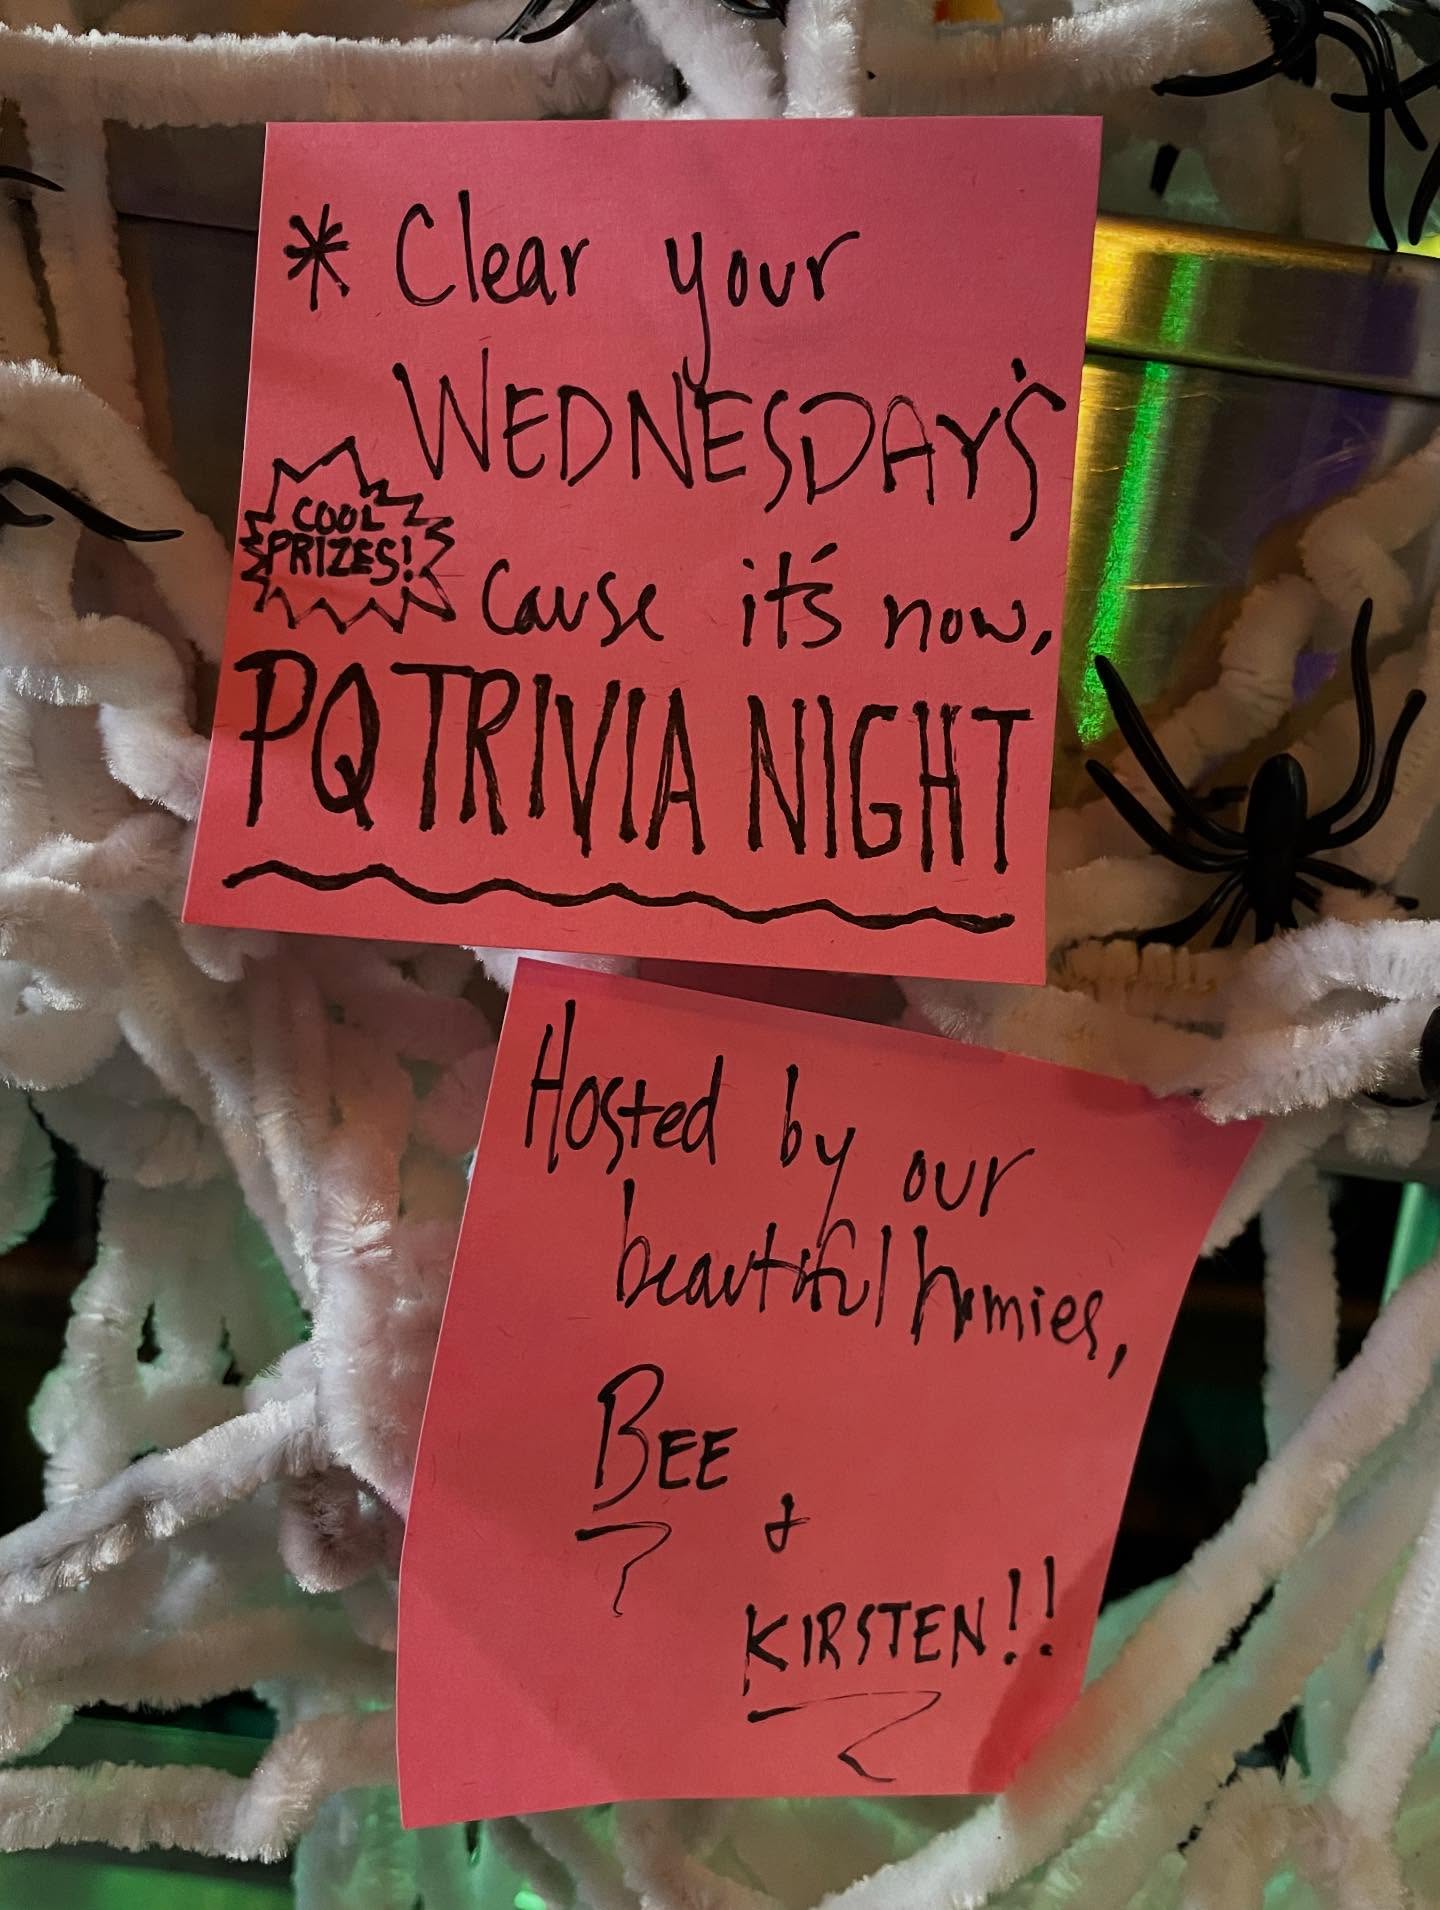 * Clear your
WEDNESDAY'S
COOL
PRIZES!
cause it's now,
PQ TRIVIA NIGHT
Hosted by our
beautiful homies,
BEE
&
KIRSTEN!!